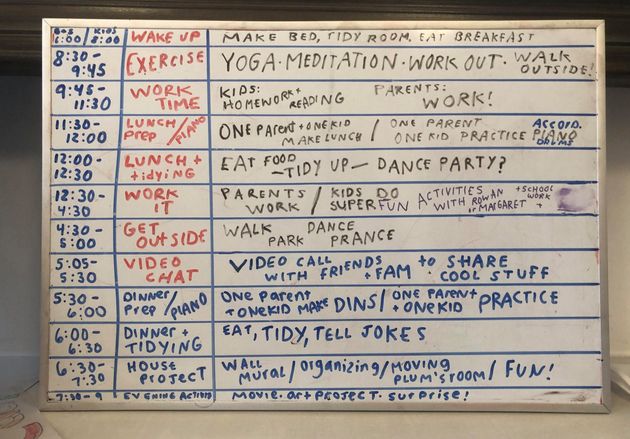 6:00 / KIDS 8:00 WAKE UP MAKE BED, TIDY ROOM. EAT BREAKFAST
8:30 - 9:45 EXERCISE YOGA · MEDITATION · WORK OUT · WALK OUTSIDE!
9:45 - 11:30 WORK TIME KIDS: HOMEWORK + READING PARENTS: WORK!
11:30 - 12:00 LUNCH Prep / PIANO ONE PARENT + ONE KID MAKE LUNCH / ONE PARENT ONE KID PRACTICE PIANO ACCORD. DRUMS
12:00 - 12:30 LUNCH + tidying EAT FOOD - TIDY UP - DANCE PARTY?
12:30 - 4:30 WORK IT PARENTS WORK / KIDS DO SUPER FUN ACTIVITIES WITH ROWAN or MARGARET + SCHOOL WORK +
4:30 - 5:00 GET OUtSIDE WALK PARK DANCE PRANCE
5:05 - 5:30 VIDEO CHAT VIDEO CALL WITH FRIENDS + FAM to SHARE COOL STUFF
5:30 - 6:00 DINNER Prep / PIANO ONE PARENT + ONE KID MAKE DINS / ONE PARENT + ONE KID PRACTICE
6:00 - 6:30 DINNER + TIDYING EAT, TIDY, TELL JOKES
6:30 - 7:30 HOUSE PROJECT WALL MURAL / Organizing / MOVING PLUM'S ROOM / FUN!
7:30 - 9 EVENING MOVIE · art PROJECT · SURPRISE!